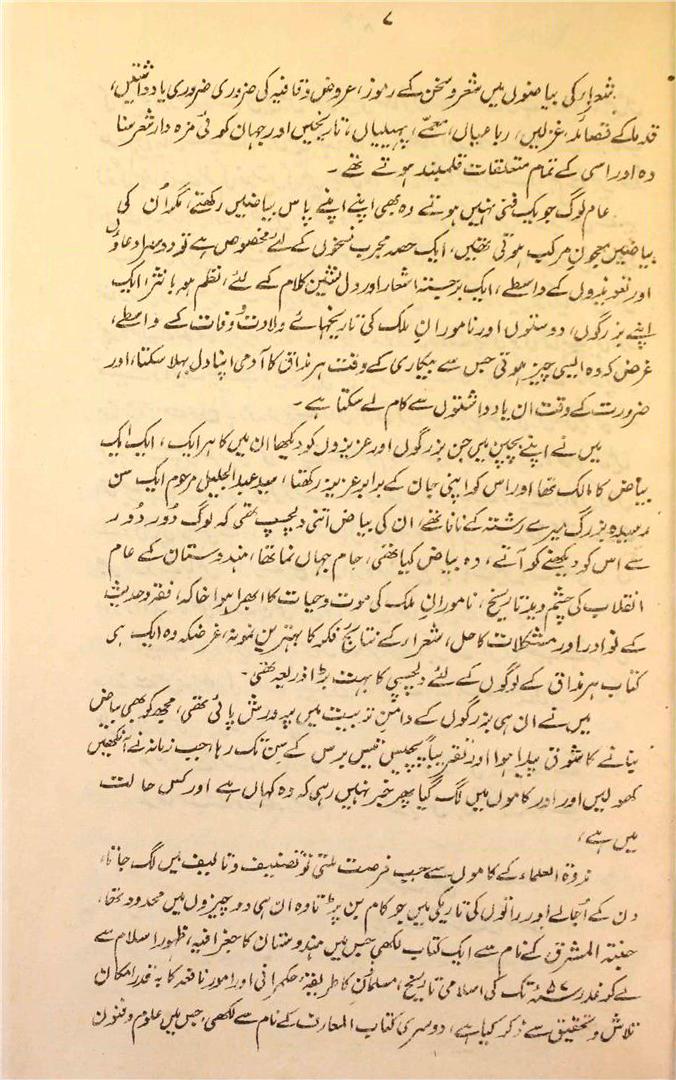 ۷
شعراء کی بیاضوں میں شعر و سخن کے رموز، عروض و قافیہ کی ضروری ضروری یادداشتیں،
قدما کے قصائد، غزلیں، رباعیاں، معمے، پہیلیاں، تاریخیں اور جہان کوئی مزہ دار شعر سنا
وہ اور اسی کے تمام متعلقات قلمبند ہوتے تھے۔
عام لوگ جو یک فنی نہیں ہوتے وہ بھی اپنے اپنے پاس بیاضیں رکھتے، مگر اُن کی
بیاضیں معجون مرکب ہوتی تھیں، ایک حصہ مجرب نسخوں کے لئے مخصوص ہے تو دوسرا دعاؤں
اور تعویذوں کے واسطے، ایک برجستہ اشعار اور دل نشین کلام کے لئے، نظم ہو یا نثر، ایک
اپنے بزرگوں، دوستوں اور ناموران ملک کی تاریخہائے ولادت و وفات کے واسطے،
غرض کہ وہ ایسی چیز ہوتی جس سے بیکاری کے وقت ہر مذاق کا آدمی اپنا دل بہلا سکتا، اور
ضرورت کے وقت ان یادداشتوں سے کام لے سکتا ہے۔
میں نے اپنے بچپن میں جن بزرگوں اور عزیزوں کو دیکھا ان میں کا ہر ایک، ایک ایک
بیاض کا مالک تھا اور اس کو اپنی جان کے برابر عزیز رکھتا، سید عبدالجلیل مرحوم ایک سن
رسیدہ بزرگ میرے رشتہ کے نانا تھے، ان کی بیاض اتنی دلچسپ تھی کہ لوگ دُور دُور
سے اس کو دیکھنے کو آتے، وہ بیاض کیا تھی، جام جہاں نما تھا، ہندوستان کے عام
انقلاب کی چشم دید تاریخ، ناموران ملک کی موت و حیات کا ابھرا ہوا خاکہ، فقہ و حدیث
کے نوادر اور مشکلات کا حل، شعراء کے نتائج فکر کا بہترین نمونہ، غرضکہ وہ ایک ہی
کتاب ہر مذاق کے لوگوں کے لئے دلچسپی کا بہت بڑا ذریعہ تھی۔
میں نے ان ہی بزرگوں کے دامن تربیت میں پرورش پائی تھی، مجھ کو بھی بیاض
بنانے کا شوق پیدا ہوا اور تقریباً پچیس تیس برس کے سن تک رہا، جب زمانہ نے آنکھیں
کھولیں اور اور کاموں میں لگ گیا پھر خبر نہیں رہی کہ وہ کہاں ہے اور کس حالت
میں ہے،
ندوۃ العلماء کے کاموں سے جب فرصت ملتی تو تصنیف و تالیف میں لگ جاتا،
دن کے اُجالے اور راتوں کی تاریکی میں جو کام بن پڑتا وہ ان ہی دو چیزوں میں محدود تھا،
جنۃ المشرق کے نام سے ایک کتاب لکھی جس میں ہندوستان کا جغرافیہ، ظہور اسلام سے
لے کر غدر ۵۷ء تک کی اسلامی تاریخ، مسلمانوں کا طریقہ حکمرانی اور امور نافعہ کا بہ قدر امکان
تلاش و تحقیق سے ذکر کیا ہے، دوسری کتاب المعارف کے نام سے لکھی، جس میں علوم و فنون